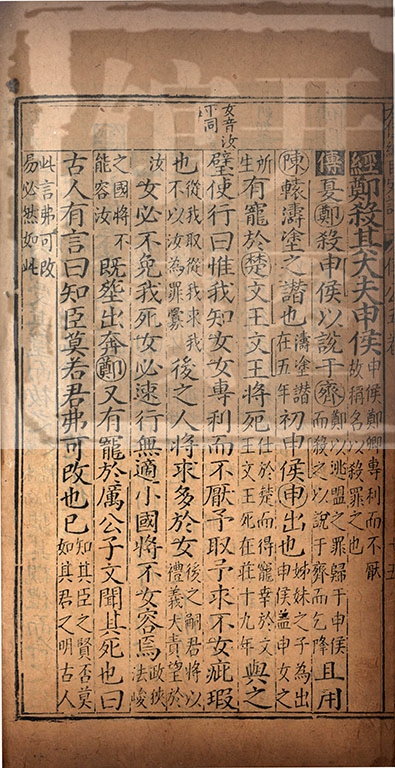 經鄭殺其大夫申侯申侯鄭卿專利而不厭故稱名以殺罪之也
傳夏鄭殺申侯以說于齊鄭以洮盟之罪歸于申侯而殺之以說于齊而乞降且用
陳轅濤塗之譖也濤塗譖在五年初申侯申出也姊妹之子為出申侯蓋申女之
所生有寵於楚文王文王將死仕於楚而得寵幸於文王文王死在莊十九年與之
女音汝下同
璧使行曰惟我知女女專利而不厭予取予求不女疵瑕
也從我取從我求我不以汝為罪釁後之人將求多於女後之嗣君將以禮義大責望於
汝女必不免我死女必速行無適小國將不女容焉政狹法峻
之國將不能容汝既葬出奔鄭又有寵於厲公子文聞其死也曰
古人有言曰知臣莫若君弗可改也已知其臣之賢否莫如其君之明古人
此言弗可改易必然如此